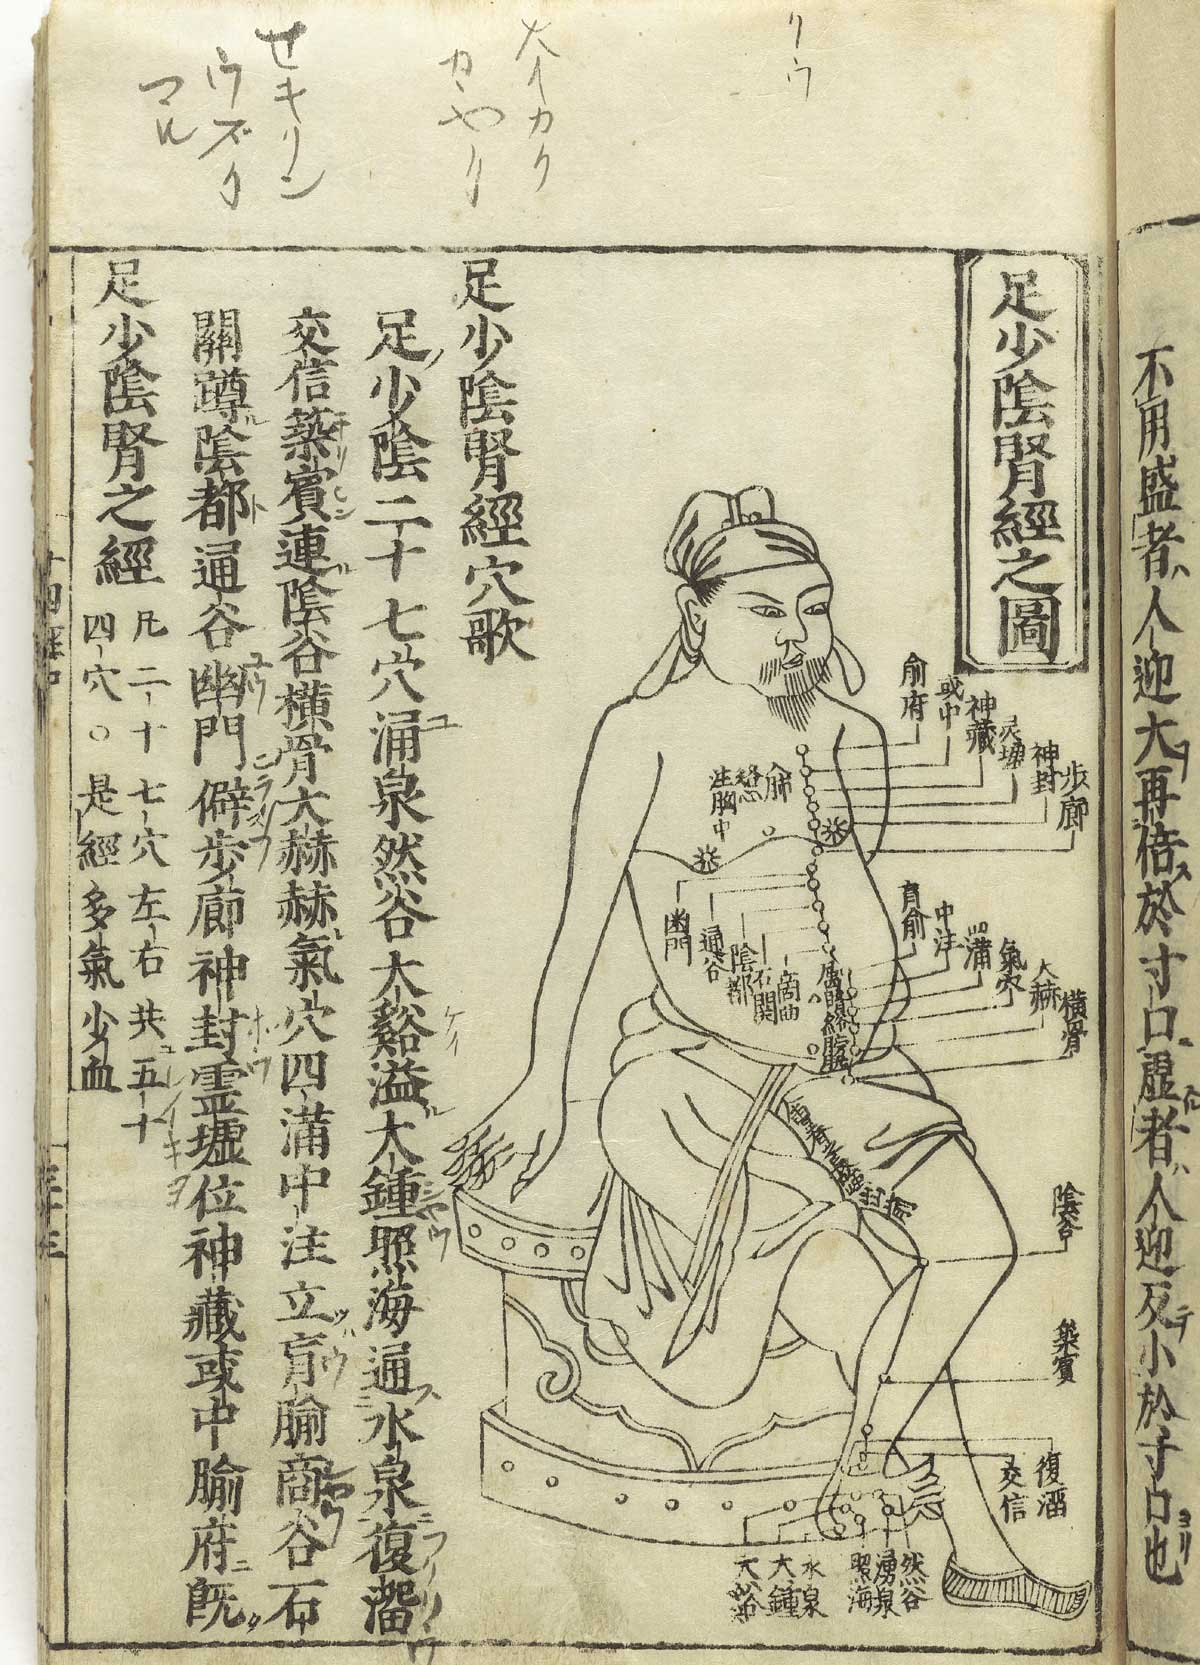 不用盛者人迎大再倍於寸口虛者人迎反小於寸口也
足少陰腎經之圖
俞府
或中
神藏
灵墟
神封
步廊
肺
注胸中
幽門
通谷
陰都
石関
商曲
肓俞
中注
四滿
氣穴
大赫
橫骨
陰谷
築賓
復溜
交信
然谷
湧泉
照海
水泉
大鍾
足少陰腎經穴歌
足少陰二十七穴涌泉然谷太谿溢大鍾照海通水泉復溜
交信築賓連陰谷橫骨大赫赫氣穴四滿中注立肓腧商谷石
關蹲陰都通谷幽門僻步廊神封霊墟位神藏或中腧府既
足少陰腎之經
凡二十七穴左右共五十
四穴○是經多氣少血
リウ
大イカク
セキリン
ウズク
マル